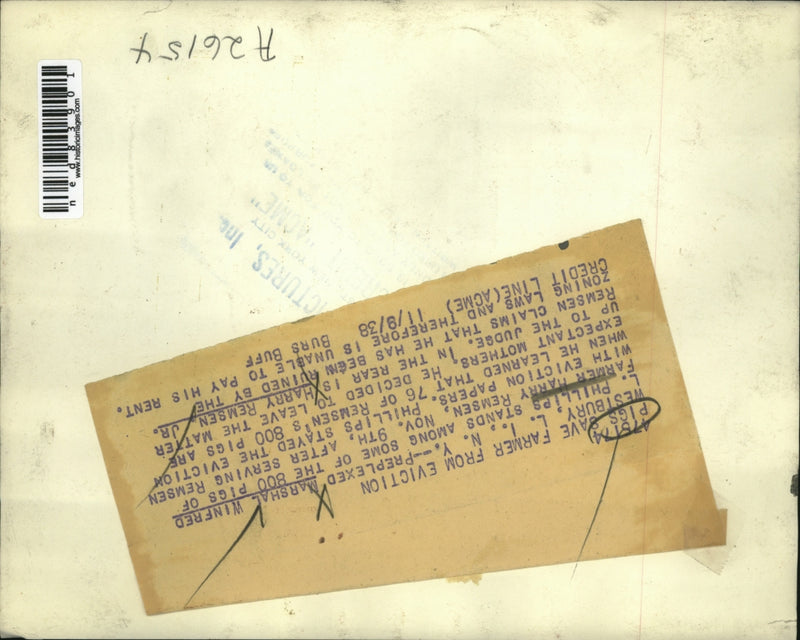 A26154
ned83901
www.historicimages.com
PICTURES, Inc.
YORK CITY
"ACME"
PIGS SAVE FARMER FROM EVICTION
WESTBURY, L. I., N. Y.--PREPLEXED MARSHAL WINFRED
L. PHILLIPS STANDS AMONG SOME OF THE 800 PIGS OF
FARMER HARRY REMSEN. PHILLIPS AFTER SERVING REMSEN
WITH EVICTION PAPERS, NOV. 9TH, STAYED THE EVICTION
WHEN HE LEARNED THAT 76 OF REMSEN'S 800 PIGS ARE
EXPECTANT MOTHERS. HE DECIDED TO LEAVE THE MATTER
UP TO THE JUDGE. IN THE REAR IS HARRY REMSEN, JR.
REMSEN CLAIMS THAT HE HAS BEEN RUINED BY THE
ZONING LAWS AND THEREFORE IS UNABLE TO PAY HIS RENT.
CREDIT LINE(ACME) 11/9/38 BURS BUFF